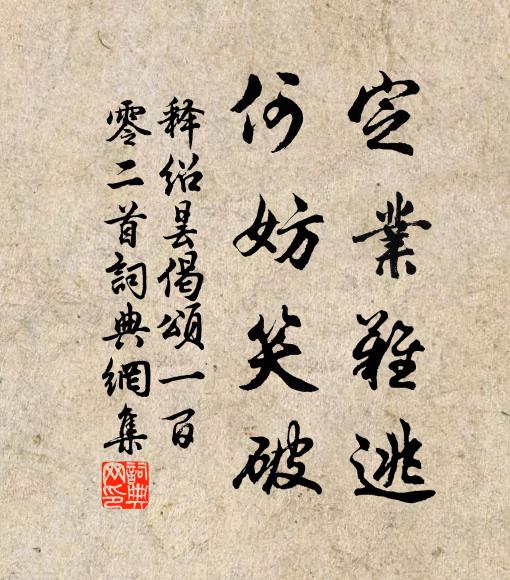 定業難逃
何妨笑破
釋紹曇偈頌一百
零二首詞典網集
詞典
网印